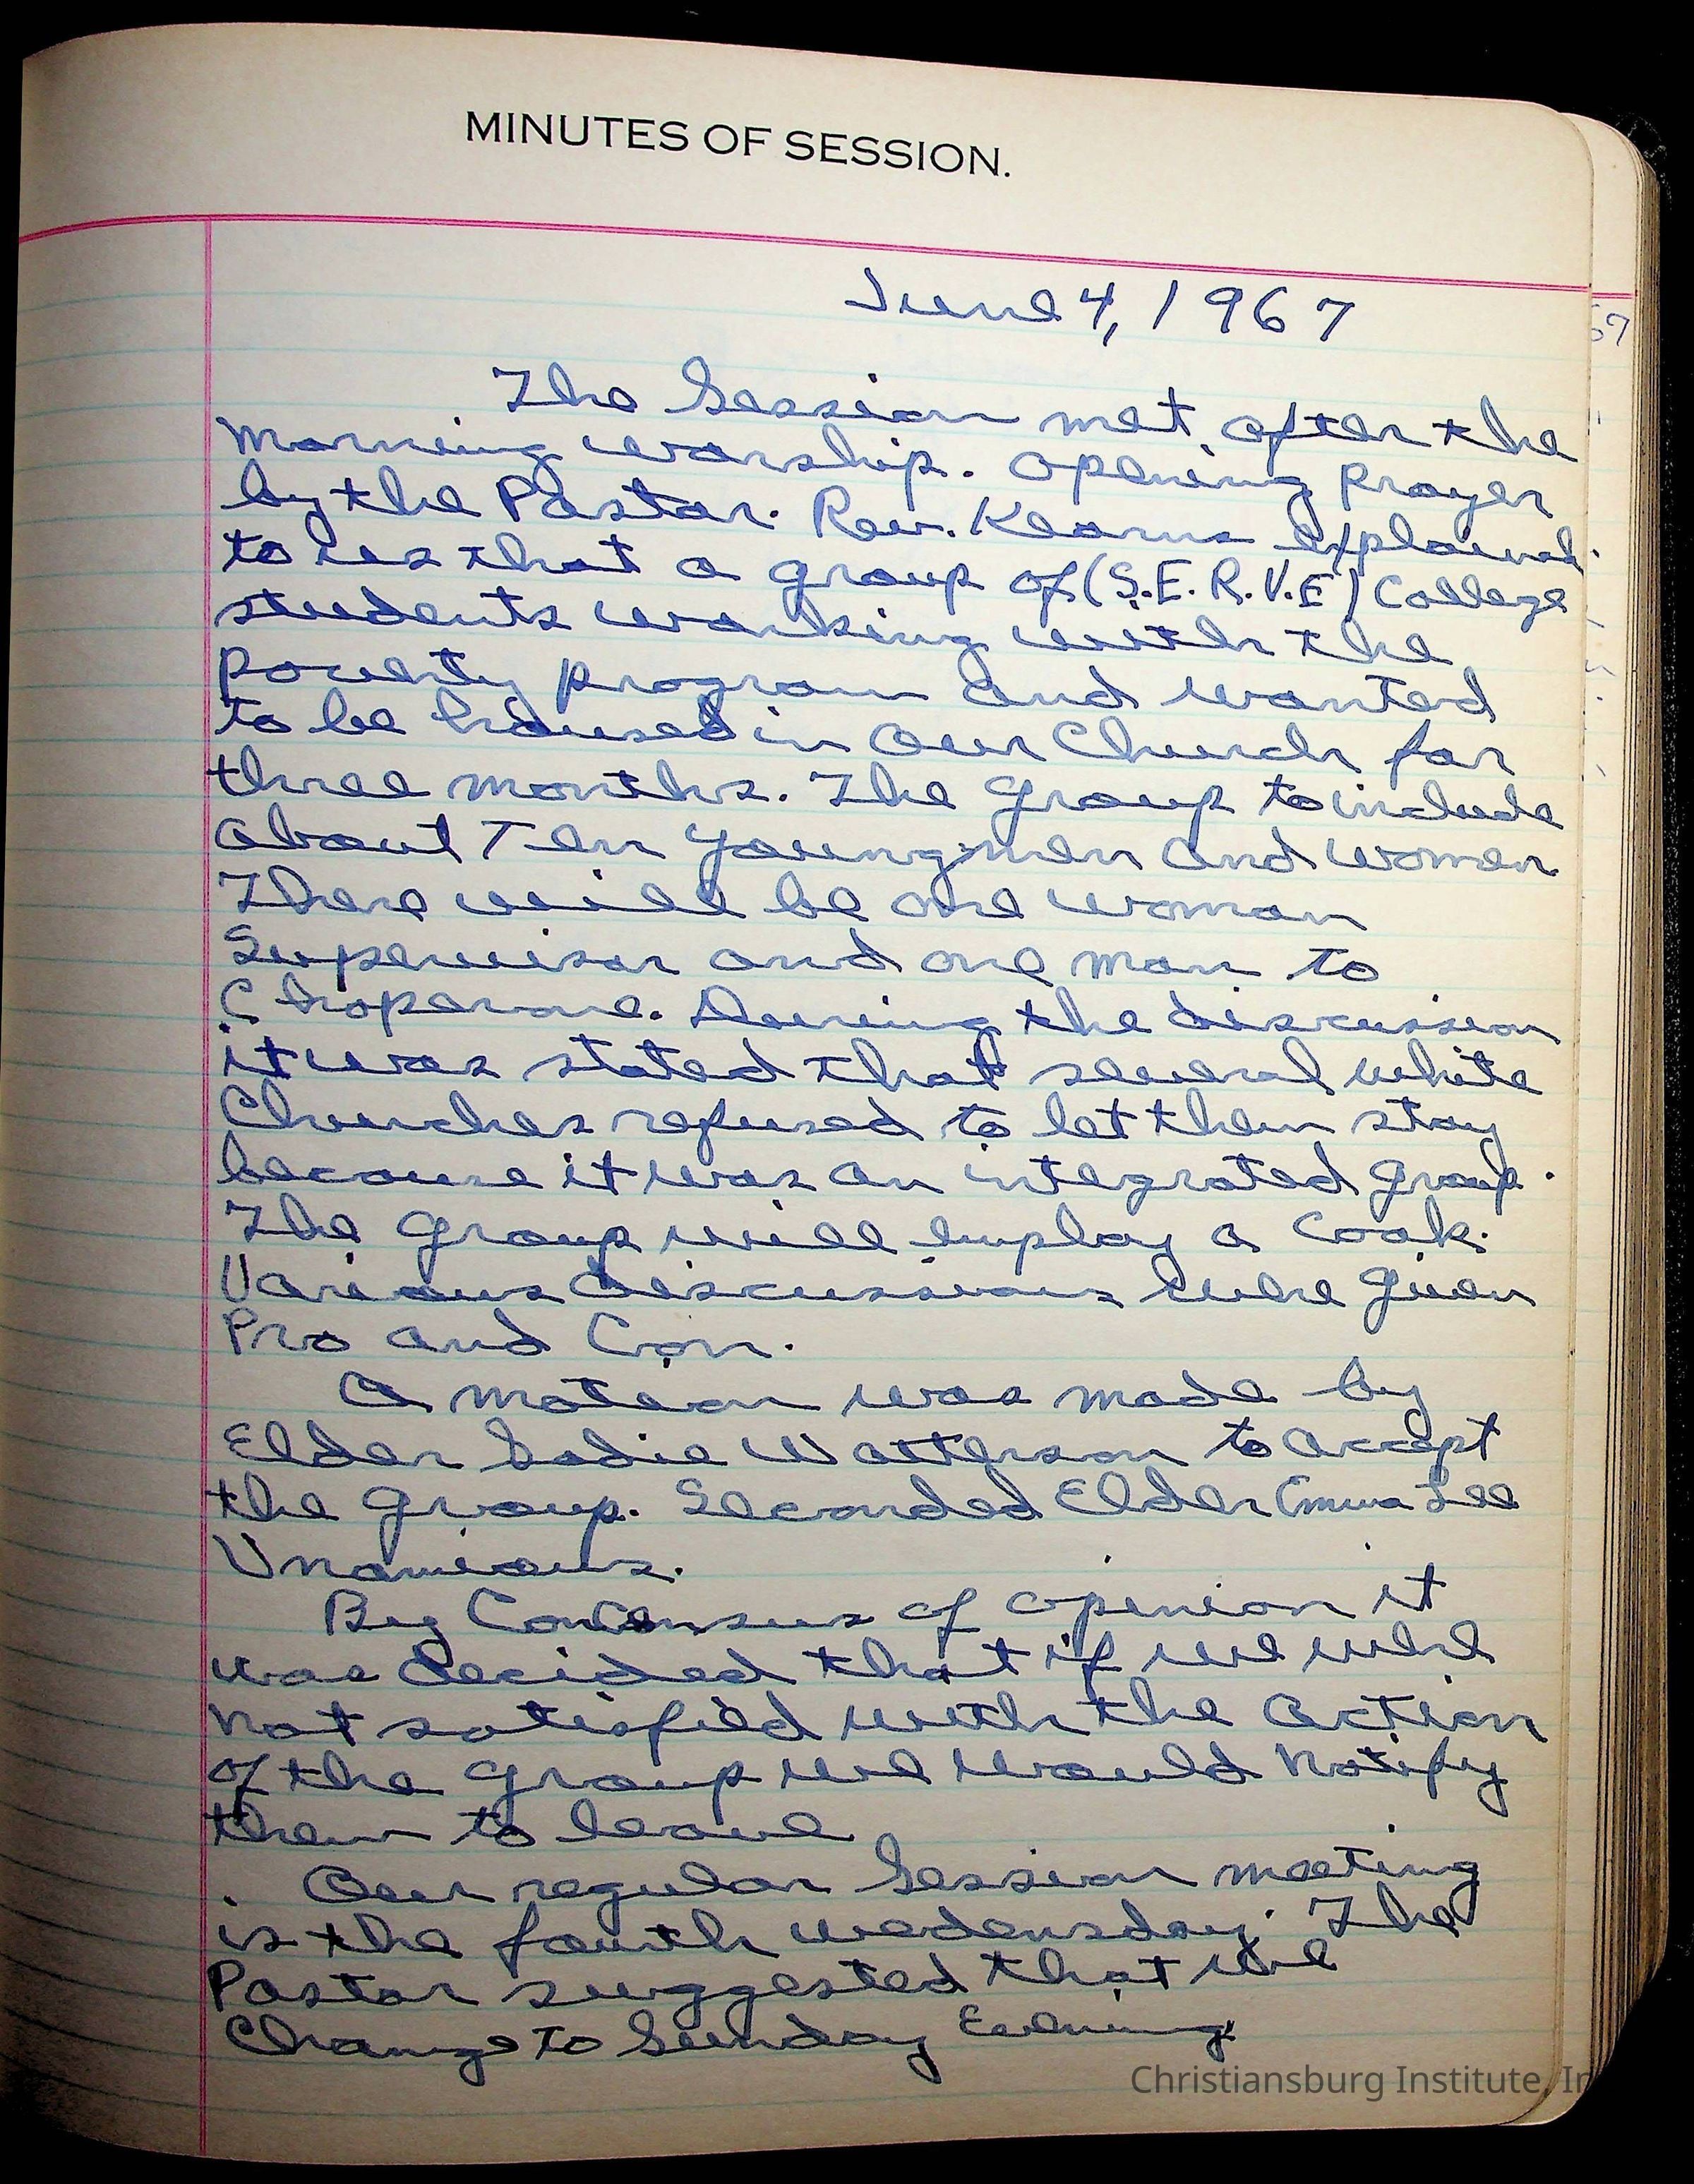 MINUTES OF SESSION.
June 4, 1967
67
The Session met after the
morning worship. Opening Prayer
by the Pastor. Rev. Kearns explained
to us that a group of (S.E.R.V.E) College
students working with the
poverty program and wanted
to be housed in our Church for
three months. The Group to include
about Ten young men and women
There will be one woman
Supervisor and one man to
Chaperone. During the discussion
it was stated that several white
Churches refused to let them stay
because it was an integrated group.
The Group will employ a Cook.
Various discussions were given
Pro and Con.
A motion was made by
Elder Sadie Watterson to accept
the group. Seconded Elder Emma Lee
Unamious.
By Concensus of opinion it
was decided that if we were
not satisfied with the action
of the group we would notify
them to leave
Our regular Session meeting
is the fourth wedensday. The
Pastor suggested that we
Change to Sunday Evening.
Christiansburg Institute, In